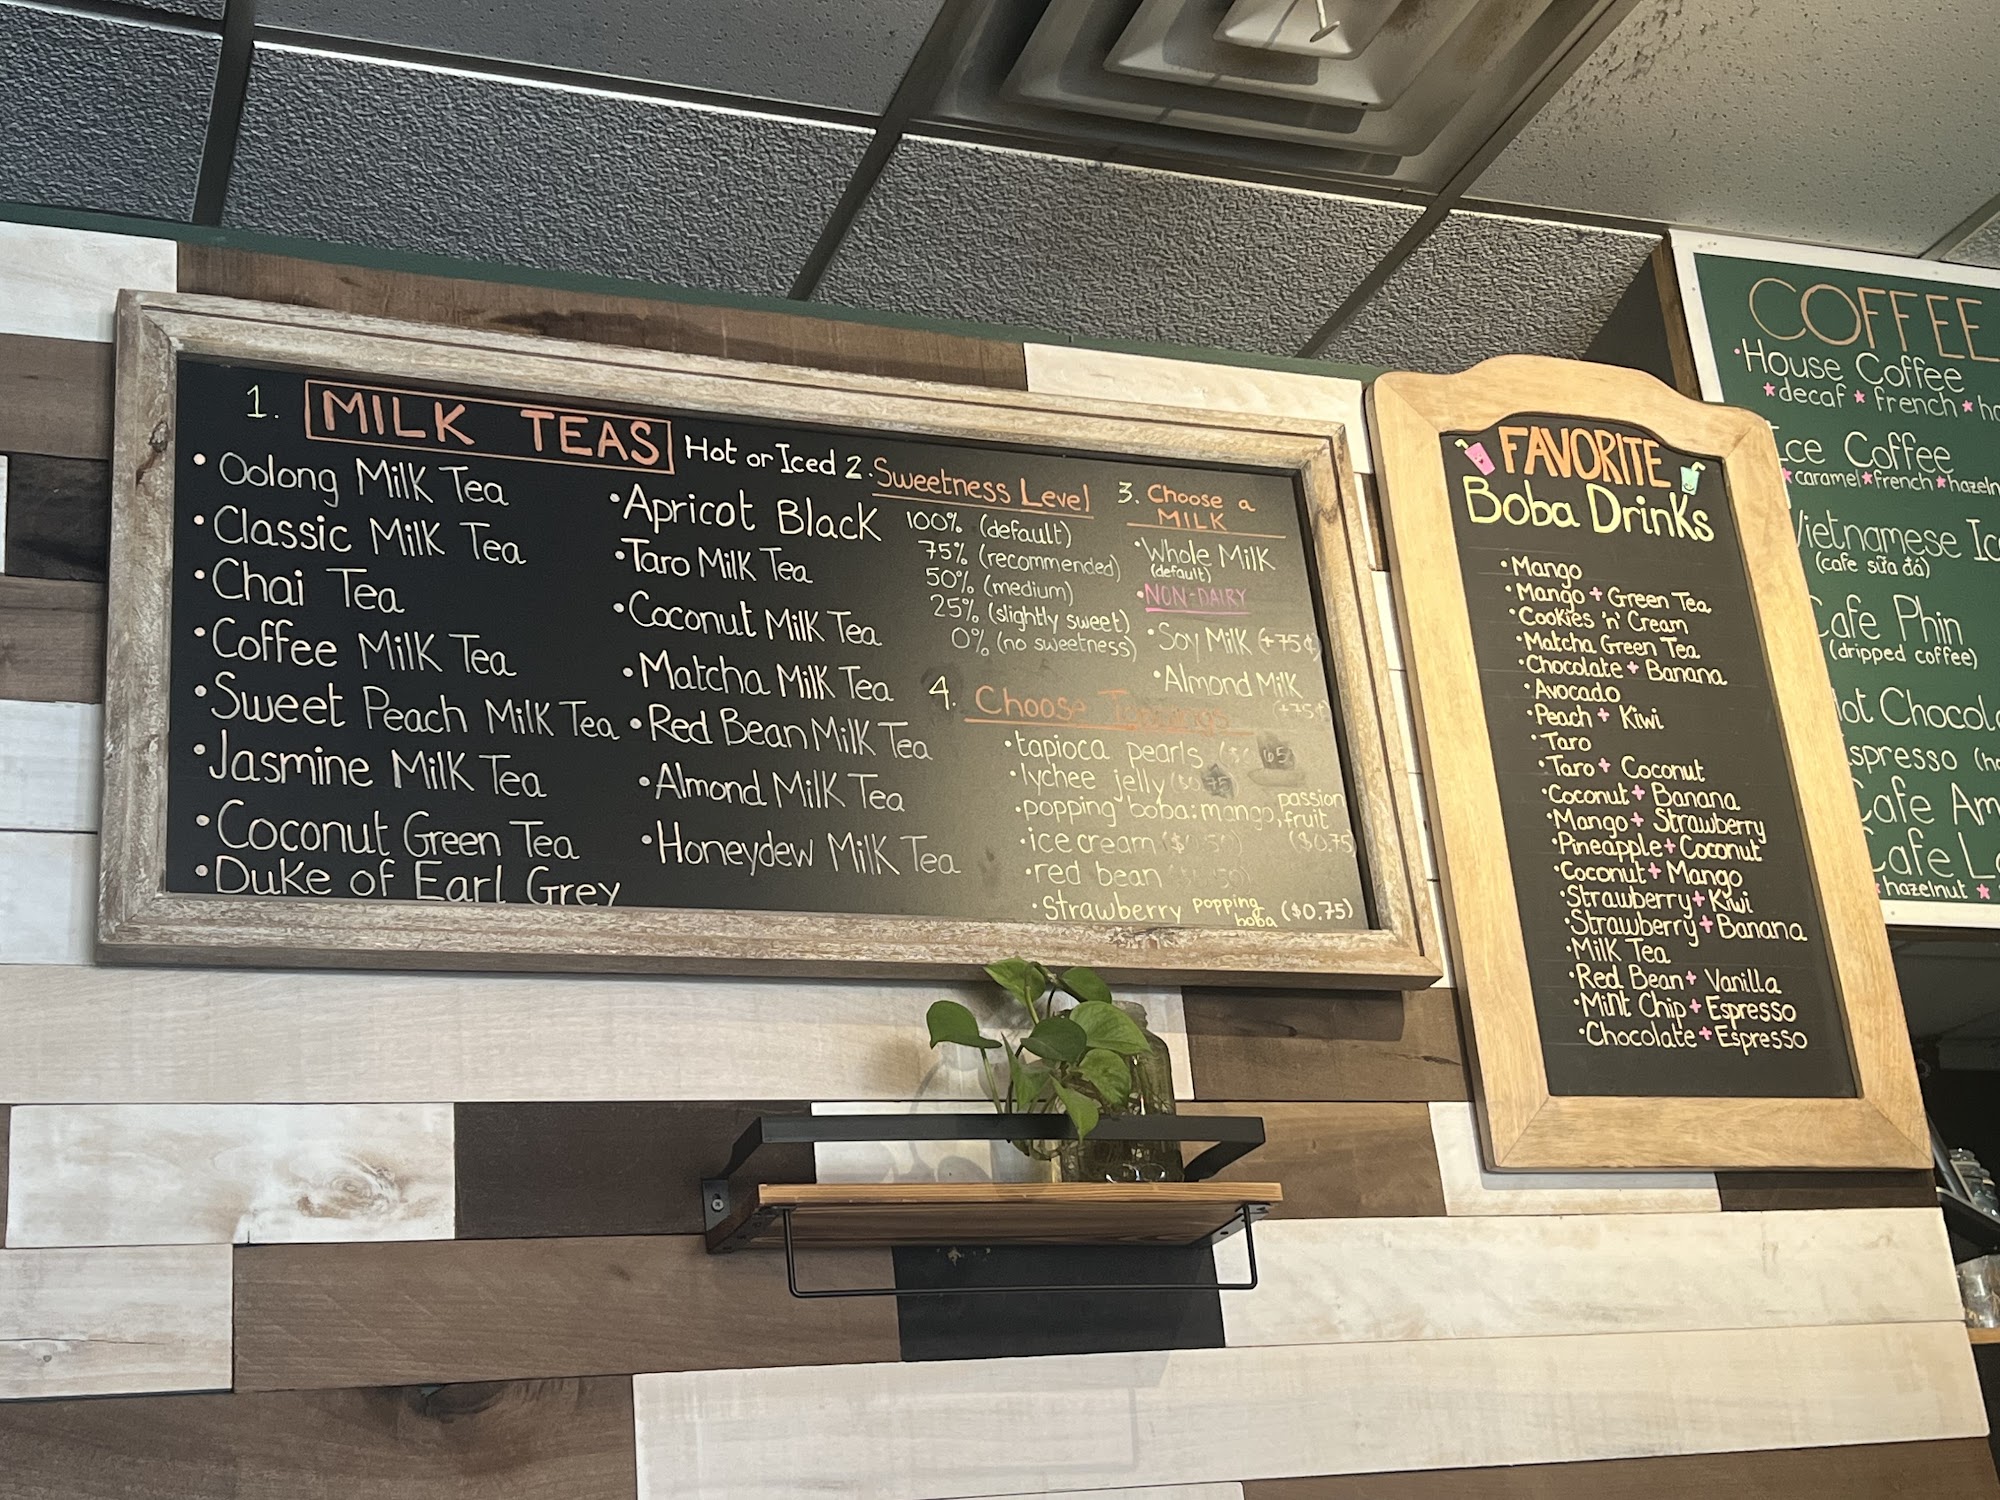 1. MILK TEAS Hot or Iced
• Oolong Milk Tea
• Classic Milk Tea
• Chai Tea
• Coffee Milk Tea
• Sweet Peach Milk Tea
• Jasmine Milk Tea
• Coconut Green Tea
• Duke of Earl Grey
• Apricot Black
• Taro Milk Tea
• Coconut Milk Tea
• Matcha Milk Tea
• Red Bean Milk Tea
• Almond Milk Tea
• Honeydew Milk Tea
2. Sweetness Level
100% (default)
75% (recommended)
50% (medium)
25% (slightly sweet)
0% (no sweetness)
3. Choose a
MILK
• Whole Milk
(default)
• NON-DAIRY
• Soy Milk (+75¢)
• Almond Milk
(+75¢)
4. Choose Toppings
• tapioca pearls
• lychee jelly
• popping boba: mango, passion
fruit
($0.75)
• ice cream
• red bean
• Strawberry popping
boba ($0.75)
FAVORITE
Boba Drinks
• Mango
• Mango + Green Tea
• Cookies 'n' Cream
• Matcha Green Tea
• Chocolate + Banana
• Avocado
• Peach + Kiwi
• Taro
• Taro + Coconut
• Coconut + Banana
• Mango + Strawberry
• Pineapple + Coconut
• Coconut + Mango
• Strawberry + Kiwi
• Strawberry + Banana
• Milk Tea
• Red Bean + Vanilla
• Mint Chip + Espresso
• Chocolate + Espresso
COFFEE
• House Coffee
★ decaf ★ french ★
Ice Coffee
★ caramel ★ french ★
Vietnamese
(cafe sữa đá)
Cafe Phin
(dripped coffee)
Hot
Espresso
Cafe
Cafe
★ hazelnut ★